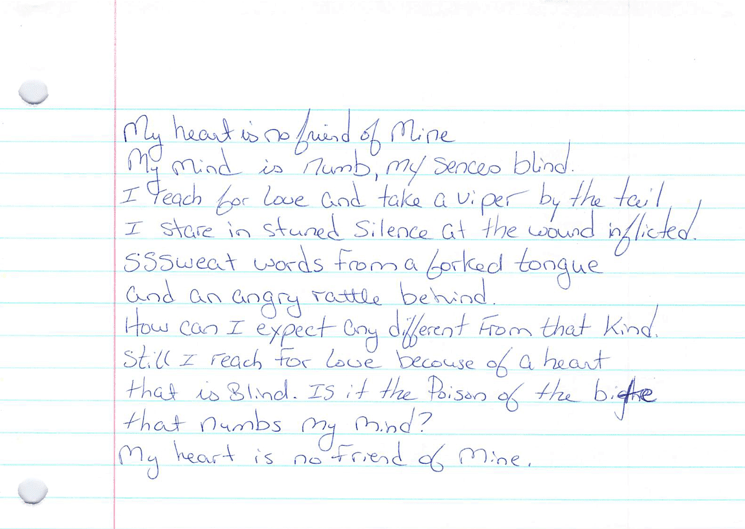 My heart is no friend of Mine
My mind is numb, my sences blind.
I reach for love and take a viper by the tail,
I stare in stuned silence at the wound inflicted.
SSSweat words from a forked tongue
and an angry rattle behind.
How can I expect any different From that Kind.
Still I reach For love becouse of a heart
that is Blind. IS it the Poison of the bite
that numbs my mind?
My heart is no Friend of Mine.